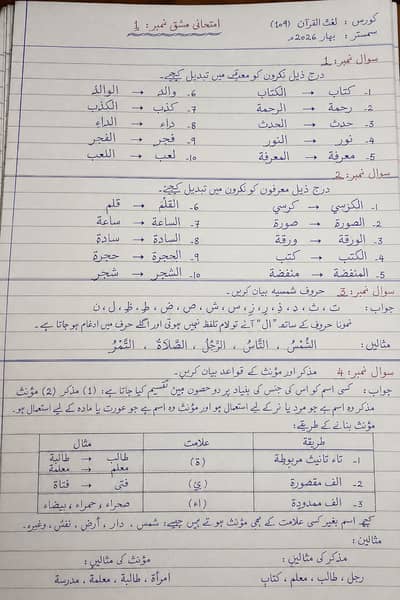 کورس : لغتہ القرآن (۱۰۹)
سمسٹر : بہار ۲۰۲۶ء
امتحانی مشق نمبر : 1
سوال نمبر : 1
درج ذیل نکروں کو معرفہ میں تبدیل کیجیے۔
1۔ کتاب → الکتاب 6۔ والد → الوالد
2۔ رحمة → الرحمة 7۔ کذب → الکذب
3۔ حدث → الحدث 8۔ داء → الداء
4۔ نور → النور 9۔ فجر → الفجر
5۔ معرفة → المعرفة 10۔ لعب → اللعب
سوال نمبر : 2
درج ذیل معرفوں کو نکروں میں تبدیل کیجیے۔
1۔ الکرسي → کرسي 6۔ القلم → قلم
2۔ الصورة → صورة 7۔ الساعة → ساعة
3۔ الورقة → ورقة 8۔ السادة → سادة
4۔ الکتب → کتب 9۔ الحجرة → حجرة
5۔ المنفضة → منفضة 10۔ الشجر → شجر
سوال نمبر : 3 حروف شمسیہ بیان کریں۔
جواب : ت ، ث ، د ، ذ ، ر ، ز ، س ، ش ، ص ، ض ، ط ، ظ ، ل ، ن
حروف کے ساتھ "ال" آئے تو لام تلفظ نہیں ہوتی اور اگلے حرف میں ادغام ہو جاتا ہے۔
مثالیں : الشَّمْسُ ، النَّاسُ ، الرَّجُلُ ، الصَّلَاةُ ، التَّمْرُ
سوال نمبر : 4 مذکر اور مؤنث کے قواعد بیان کریں۔
جواب : کسی اسم کو اس کی جنس کی بنیاد پر دو حصوں میں تقسیم کیا جاتا ہے : (1) مذکر (2) مؤنث
مذکر وہ اسم ہے جو مرد یا نر کے لیے استعمال ہو اور مؤنث وہ اسم ہے جو عورت یا مادہ کے لیے استعمال ہو۔
مؤنث بنانے کے طریقے :
طریقة علامت مثال
1۔ تاء تانیث مربوطة (ة) طالب → طالبة
معلم → معلمة
2۔ الف مقصورة (ی) فتی → فتاة
3۔ الف ممدودة (اء) صحراء ، حمراء ، بیضاء
کچھ اسم بغیر کسی علامت کے بھی مؤنث ہوتے ہیں جیسے : شمس ، دار ، أرض ، نفش ، وغیرہ۔
مثالیں :
مذکر کی مثالیں : مؤنث کی مثالیں :
رجل ، طالب ، معلم ، کتاب امرأة ، طالبة ، معلمة ، مدرسة